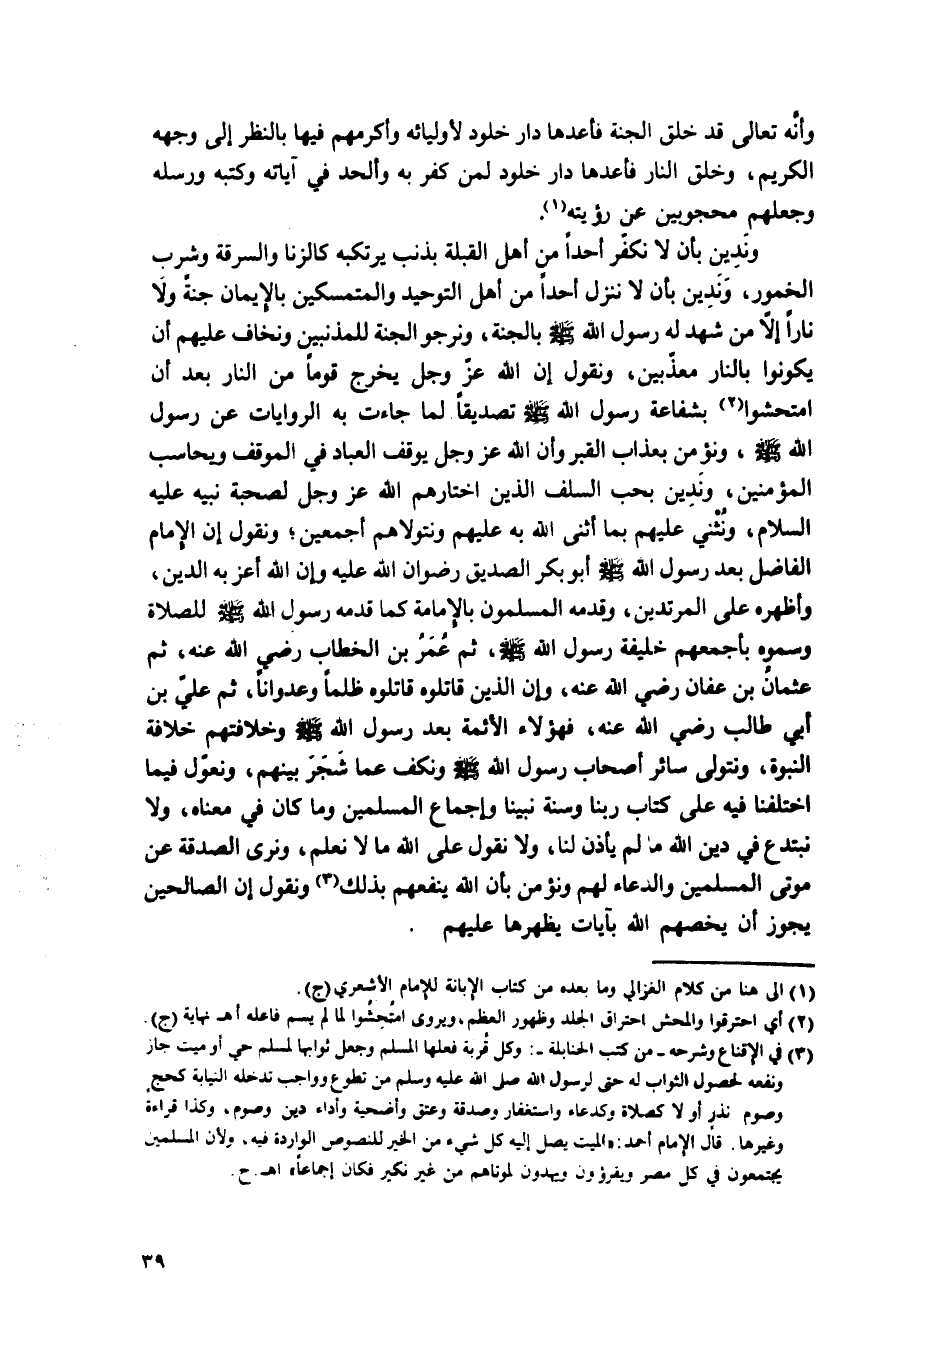 وأنَّه تعالى قد خلق الجنة فأعدها دار خلود لأوليائه وأكرمهم فيها بالنظر إلى وجهه
الكريم، وخلق النار فأعدها دار خلود لمن كفر به وألحد في آياته وكتبه ورسله
وجعلهم محجوبين عن رؤيته(١).
ونَدِين بأن لا نكفّر أحداً من أهل القبلة بذنب يرتكبه كالزنا والسرقة وشرب
الخمور، وَنَدِين بأن لا ننزل أحداً من أهل التوحيد والمتمسكين بالإيمان جنةً ولَا
ناراً إلَّا من شهد له رسول الله ﷺ بالجنة، ونرجو الجنة للمذنبين ونخاف عليهم أن
يكونوا بالنار معذّبين، ونقول إن الله عزّ وجل يخرج قوماً من النار بعد أن
امتحشوا(٢) بشفاعة رسول الله ﷺ تصديقاً لما جاءت به الروايات عن رسول
الله ﷺ ، ونؤمن بعذاب القبر وأن الله عز وجل يوقف العباد في الموقف ويحاسب
المؤمنين، ونَدِين بحب السلف الذين اختارهم الله عز وجل لصحبة نبيه عليه
السلام، ونُثْني عليهم بما أثنى الله به عليهم ونتولاهم أجمعين؛ ونقول إن الإمام
الفاضل بعد رسول الله ﷺ أبو بكر الصديق رضوان الله عليه وإن الله أعز به الدين،
وأظهره على المرتدين، وقدمه المسلمون بالإمامة كما قدمه رسول الله ﷺ للصلاة
وسموه بأجمعهم خليفة رسول الله ﷺ، ثم عُمَرُ بن الخطاب رضي الله عنه، ثم
عثمانُ بن عفان رضي الله عنه، وإن الذين قاتلوه قاتلوه ظلماً وعدواناً، ثم عليّ بن
أبي طالب رضي الله عنه، فهؤلاء الأئمة بعد رسول الله ﷺ وخلافتهم خلافة
النبوة، ونتولى سائر أصحاب رسول الله ﷺ ونكف عما شَجَرَ بينهم، ونعوّل فيما
اختلفنا فيه على كتاب ربنا وسنة نبينا وإجماع المسلمين وما كان في معناه، ولا
نبتدع في دين الله ما لم يأذن لنا، ولا نقول على الله ما لا نعلم، ونرى الصدقة عن
موتى المسلمين والدعاء لهم ونؤمن بأن الله ينفعهم بذلك(٣) ونقول إن الصالحين
يجوز أن يخصهم الله بآيات يظهرها عليهم .
(١) الى هنا من كلام الغزالي وما بعده من كتاب الإبانة للإمام الأشعري (ج).
(٢) أي احترقوا والمحش احتراق الجلد وظهور العظم، ويروى امتُحِشُوا لما لم يسم فاعله أهـ نهاية (ج).
(٣) في الإقناع وشرحه ـ من كتب الحنابلة ـ: وكل قُربة فعلها المسلم وجعل ثوابها لمسلم حي أو ميت جاز
ونفعه لحصول الثواب له حتى لرسول الله صلى الله عليه وسلم من تطوع وواجب تدخله النيابة كحج
وصوم نذر أو لا كصلاة وكدعاء واستغفار وصدقة وعتق وأضحية وأداء دين وصوم، وكذا قراءة
وغيرها. قال الإمام أحمد: «الميت يصل إليه كل شيء من الخير للنصوص الواردة فيه، ولأن المسلمين
يجتمعون في كل مصر ويقرؤون ويهدون لموتاهم من غير نكير فكان إجماعاً» اهـ. ح.
٣٩